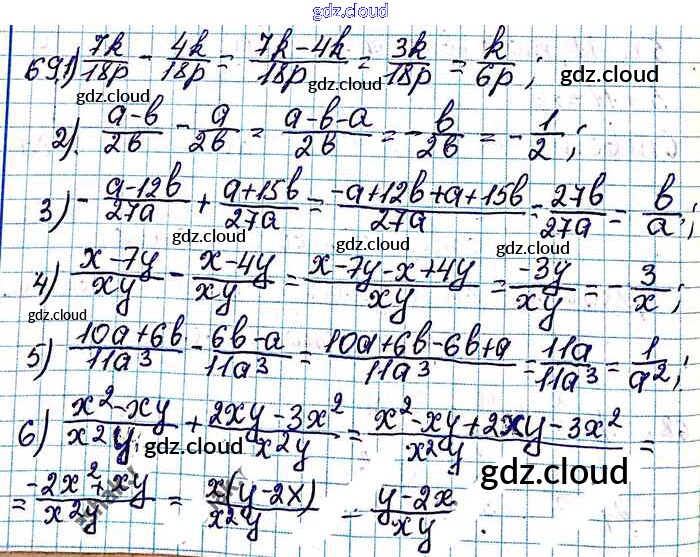 gdz.cloud
69.1) 7k/18p - 4k/18p = 7k-4k/18p = 3k/18p = k/6p; gdz.cloud
gdz.cloud gdz.cloud
2) a-b/2b - a/2b = a-b-a/2b = -b/2b = -1/2;
3) -a-12b/27a + a+15b/27a = -a+12b+a+15b/27a = 27b/27a = b/a;
gdz.cloud gdz.cloud
4) x-7y/xy - x-4y/xy = x-7y-x+4y/xy = -3y/xy = -3/x;
gdz.cloud
5) 10a+6b/11a³ - 6b-a/11a³ = 10a+6b-6b+a/11a³ = 11a/11a³ = 1/a²;
6) x²-xy/x²y + 2xy-3x²/x²y = x²-xy+2xy-3x²/x²y =
gdz.cloud gdz.cloud
= -2x²+xy/x²y = x(y-2x)/x²y = y-2x/xy.
gdz.cloud